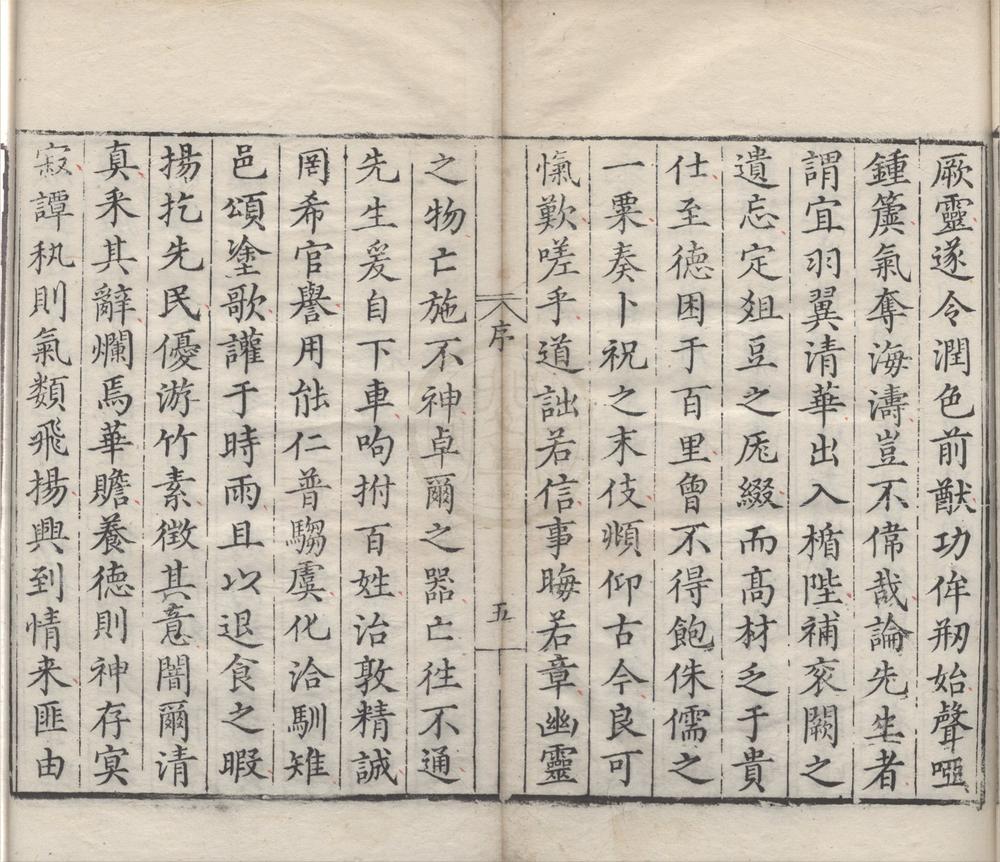 厥靈遂令潤色前猷功侔剏始聲啞
鍾簴氣奪海濤豈不偉哉論先生者
謂宜羽翼清華出入楯陛補衮闕之
遺忘定爼豆之厖綴而髙材乏于貴
仕至德困于百里曾不得飽侏儒之
一粟奏卜祝之末伎頫仰古今良可
愾歎嗟乎道詘若信事晦若章幽靈
序
五
之物亡施不神卓爾之器亡徃不通
先生爰自下車呴拊百姓治敦精誠
罔希官譽用能仁普騶虞化洽馴雉
邑頌塗歌讙于時雨且以退食之暇
揚扢先民優游竹素徴其意闇爾清
真釆其辭爛焉華贍養德則神存㝠
寂譚秇則氣類飛揚興到情来匪由